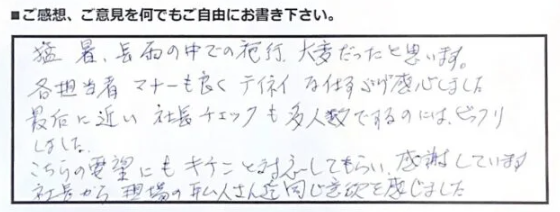 ■ご感想、ご意見を何でもご自由にお書き下さい。
猛暑、長雨の中での施行、大変だったと思います。
各担当者 マナーも良く テイネイ な仕事ぶり感心しました
最后に近い 社長チェックも多人数でするのには、ビックリ
しました。
こちらの要望にも キチンと対応してもらい、感謝しています
社長から 現場の職人さん迄同じ意欲を感じました